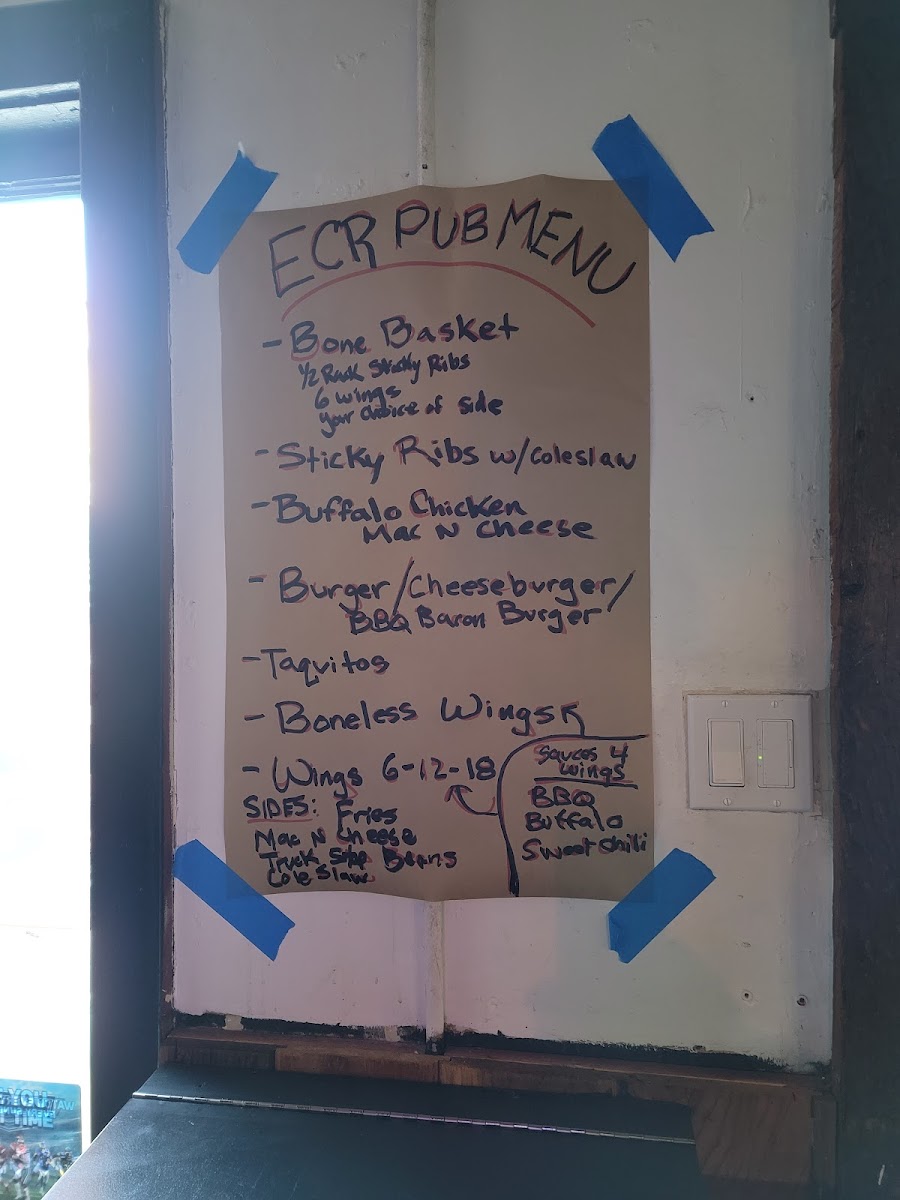 ECR PUB MENU
- Bone Basket
1/2 Rack Sticky Ribs
6 wings
your choice of side
- Sticky Ribs w/coleslaw
- Buffalo Chicken
Mac N Cheese
- Burger/Cheeseburger/
BBQ Baron Burger
- Taquitos
- Boneless Wings
- Wings 6-12-18
SIDES: Fries
Mac N Cheese
Truck Stop Beans
Cole Slaw
Sauces 4
Wings
BBQ
Buffalo
Sweet chili
YOU
TIME